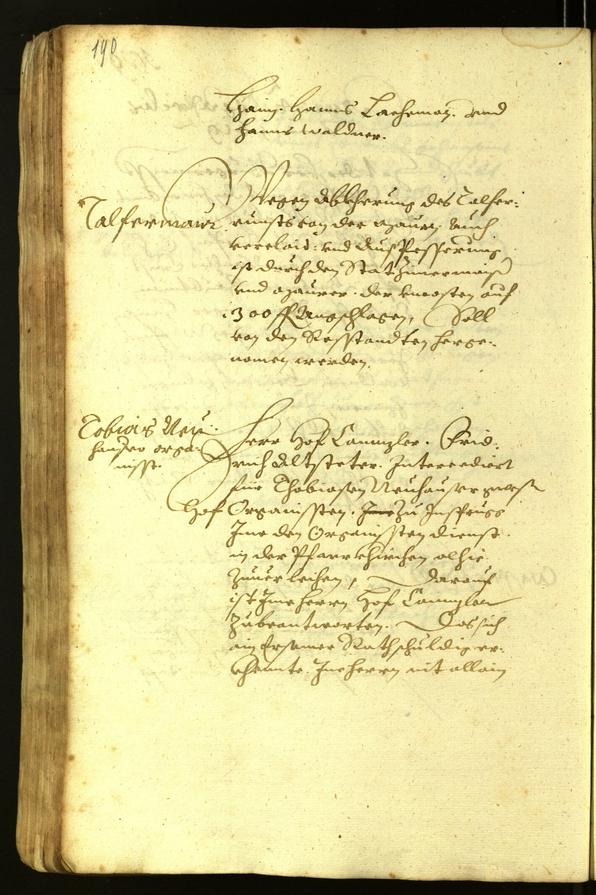 190
Haing. Hanns Lachemair. Und
Hanns Waldner.
Talfermaur
Wegen Abkherung des Talfer-
runsts von der maurn, Auch
und Auspesserung
ist durch den Statzimermaister
und maurer. der uncossten auf
1300 fl Angschlagen, Soll
von den Resstandten herge-
nomen werden.
Tobias Neu-
hauser orga-
nisst.
Herr Hof Cannzler. Frid-
rich Altsteter. Intercediert
für Thobiasen Neuhauser gewest
Hof Organissten. zu Insprugg
Ime den Organissten dienst
in der Pfarrkhirchen alhie
zuuerleihen, Darauf
ist Ime Herrn Hof Cannzler
zubeantworten. Das sich
ain Ersamer Rath schuldig er-
khennte. Ime Herrn nit allain